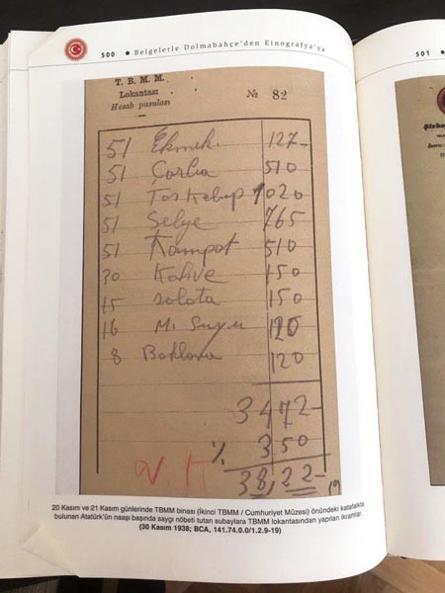 500 • Belgelerle Dolmabahçe'den Etnografya'ya
501 •
T. B. M. M.
Lokantası
Hesab pusulası
№ 82
51 Ekmek. 127-
51 Çorba 510
51 Tas Kebap 1020
51 Selye 765
51 Kompot 510
30 Kahve 150
15 salata 150
16 M. Suyu 120
8 Baklava 120
3472-
% 350
38,22-
19
20 Kasım ve 21 Kasım günlerinde TBMM binası (İkinci TBMM / Cumhuriyet Müzesi) önündeki katafalkta
bulunan Atatürk'ün naaşı başında saygı nöbeti tutan subaylara TBMM lokantasından yapılan ikramlar.
(30 Kasım 1938; BCA, 141.74.0.0/1.2.9-19)